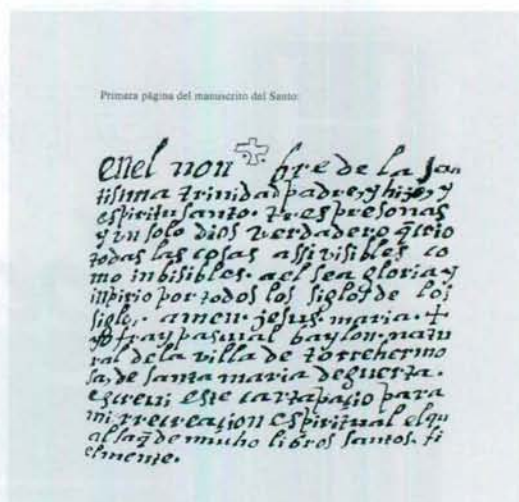 Primera página del manuscrito del Santo:
enel non bre de la san
tisima trinidad padre, y hijo, y
espiritu santo. tres presonas
y vn solo dios verdadero q̃ crio
todas las cosas assi visibles co
mo inbisibles. a el sea gloria y
inpirio por todos los siglos de los
siglos. amen. jesus. maria. +
yo fray pasqual baylon. natu
ral dela villa de torrehermo
sa, de santa maria deguerta.
escreui este cartapaçio para
mi rrecreaçion espiritual el qu
al saq̃ de mucho libros santos. fi
elmente.